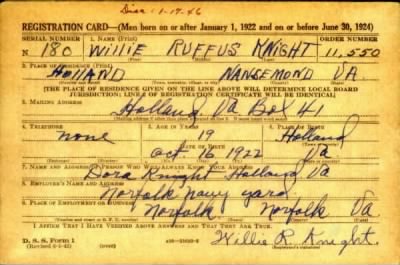 Disc. 1-17-46
REGISTRATION CARD—(Men born on or after January 1, 1922 and on or before June 30, 1924)
SERIAL NUMBER
1. NAME (Print)
ORDER NUMBER
N 180 WILLIE RUFFUS KNIGHT 11,550
2. PLACE OF RESIDENCE (Print)
HOLLAND NANSEMOND VA
[THE PLACE OF RESIDENCE GIVEN ON THE LINE ABOVE WILL DETERMINE LOCAL BOARD
JURISDICTION; LINE 2 OF REGISTRATION CERTIFICATE WILL BE IDENTICAL]
3. MAILING ADDRESS
Holland Va Box 41
4. TELEPHONE
5. AGE IN YEARS
6. PLACE OF BIRTH
none 19 Holland
Oct 16 1922 Va
7. NAME AND ADDRESS OF PERSON WHO WILL ALWAYS KNOW YOUR ADDRESS
Dora Knight Holland Va
8. EMPLOYER'S NAME AND ADDRESS
Norfolk Navy Yard
9. PLACE OF EMPLOYMENT OR BUSINESS
Norfolk Norfolk Va
I AFFIRM THAT I HAVE VERIFIED ABOVE ANSWERS AND THAT THEY ARE TRUE.
D. S. S. Form 1
Willie R. Knight.